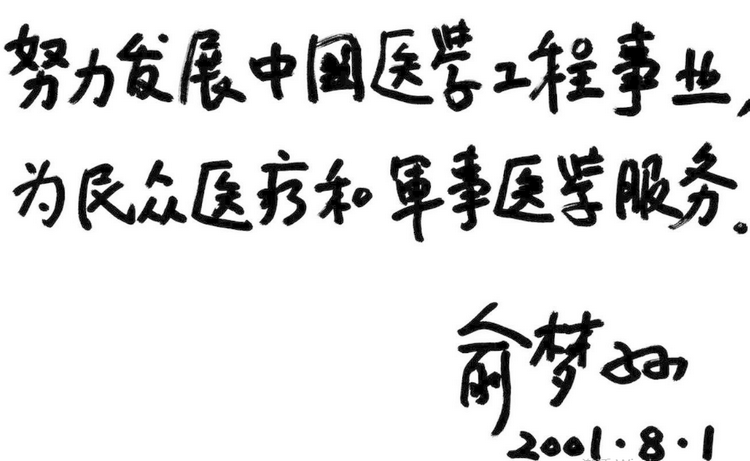 努力发展中国医学工程事业,
为民众医疗和軍事医学服务.
俞梦孙
2001.8.1